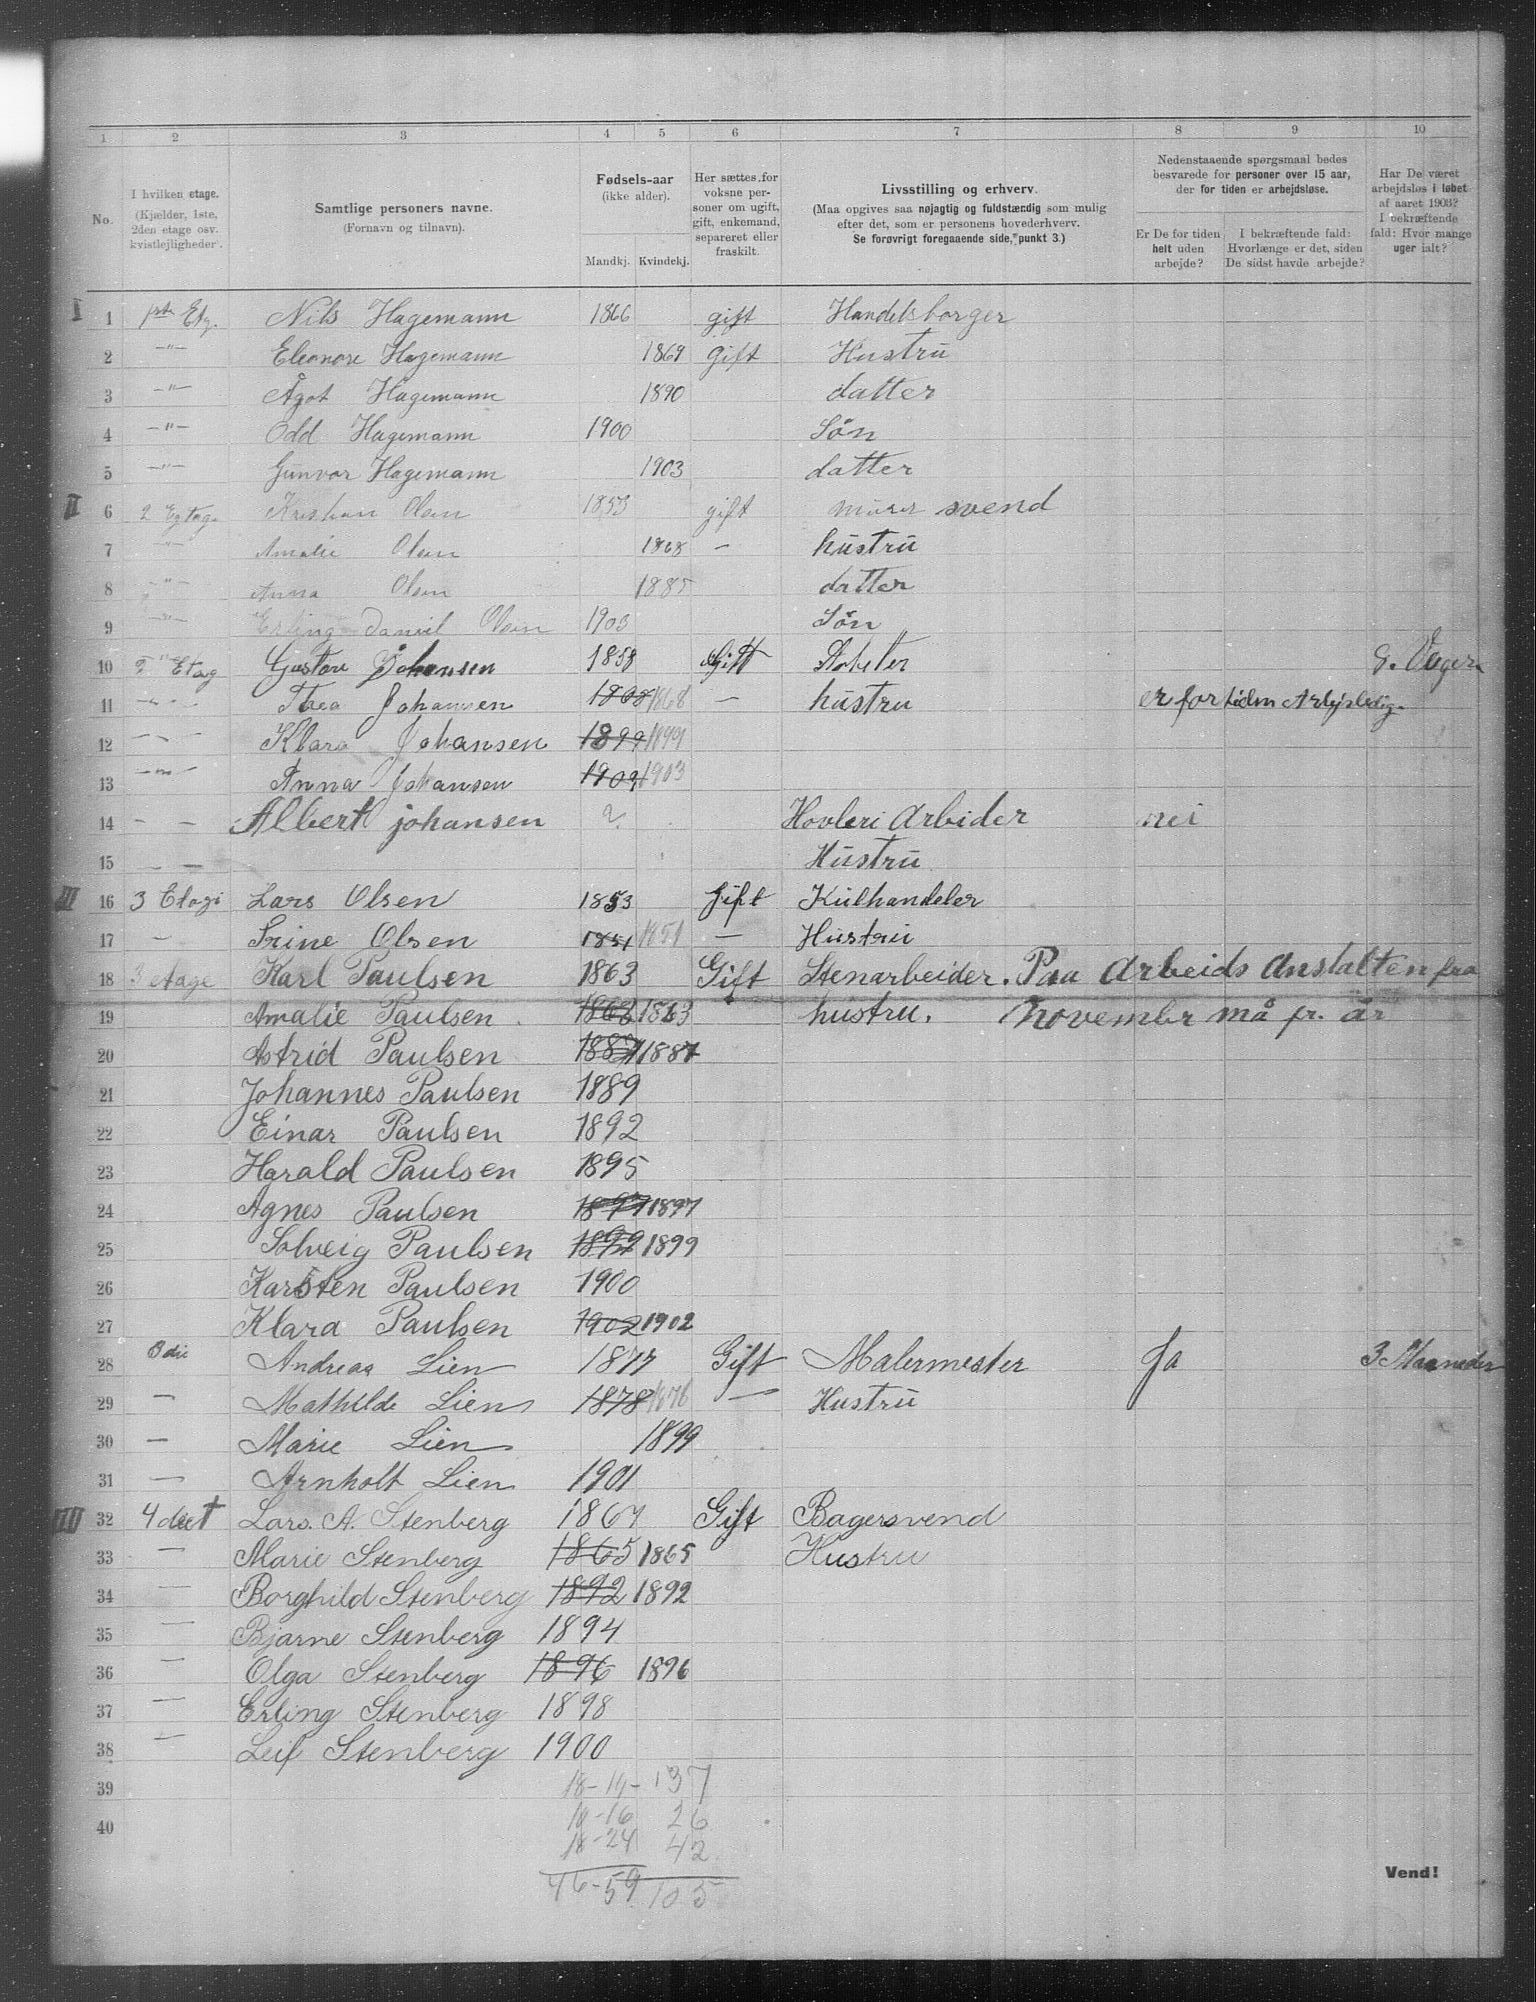 1 2 3 4 5 6 7 8 9 10
No.
I hvilken etage. (Kjælder, 1ste, 2den etage osv. kvistlejligheder.
Samtlige personers navne. (Fornavn og tilnavn).
Fødsels-aar (ikke alder).
Mandkj. Kvindekj.
Her sættes for voksne personer om ugift, gift, enkemand, separeret eller fraskilt.
Livsstilling og erhverv.
(Maa opgives saa nøjagtig og fuldstændig som mulig efter det, som er personens hovederhverv.
Se forøvrigt foregaaende side, punkt 3.)
Nedenstaaende spørgsmaal bedes besvarede for personer over 15 aar, der for tiden er arbejdsløse.
Er De for tiden helt uden arbejde?
I bekræftende fald: Hvorlænge er det, siden De sidst havde arbejde?
Har De været arbejdsløs i løbet af aaret 1903? I bekræftende fald: Hvor mange uger ialt?
I 1 Etg. Nils Hagemann 1866 gift Handelsborger
2 -"- Eleonore Hagemann 1869 gift Hustru
3 -"- Ågot Hagemann 1890 datter
4 -"- Odd Hagemann 1900 Sön
5 -"- Gunvor Hagemann 1903 datter
II 6 2 Egtage Kristian Olsen 1853 gift murer svend
7 " Amalie Olsen 1868 - hustru
8 -"- Anna Olsen 1885 datter
9 -"- Erling Daniel Olsen 1903 Sön
10 2 Etag Gustav Johansen 1858 Gift 8. Uger
11 -"- Thea Johansen 1868 1868 - hustru er for tiden Arbejsledig
12 -"- Klara Johansen 1899 1899
13 -"- Anna Johansen 1903 1903
14 - - Albert johansen ? Hovleri Arbeider nei
15 - - Hustru
III 16 3 Etage Lars Olsen 1853 Gift Kulhandeler
17 - Trine Olsen 1851 1851 - Hustru
18 3 etage Karl Paulsen 1863 Gift Stenarbeider. Paa Arbeids Anstalten fra
19 Amalie Paulsen 1863 1863 hustru. November må fr. år
20 Astrid Paulsen 1887 1887
21 Johannes Paulsen 1889
22 Einar Paulsen 1892
23 Harald Paulsen 1895
24 Agnes Paulsen 1897 1897
25 Solveig Paulsen 1899 1899
26 Karsten Paulsen 1900
27 Klara Paulsen 1902 1902
28 3die Andreas Lien 1877 Gift Malermester Ja 3 Maaneder
29 - Mathilde Lien 1878 1878 - Hustru
30 - Marie Lien 1899
31 - Arnholt Lien 1901
IIII 32 Lars. A. Stenberg 1867 Gift Bagersvend
33 - Marie Stenberg 1865 1865 Hustru
34 - Borghild Stenberg 1892 1892
35 - Bjarne Stenberg 1894
36 - Olga Stenberg 1896 1896
37 - Erling Stenberg 1898
38 - Leif Stenberg 1900
39 18-19- 37
40 10-16 26
18-24 42
46-59 105
Vend!